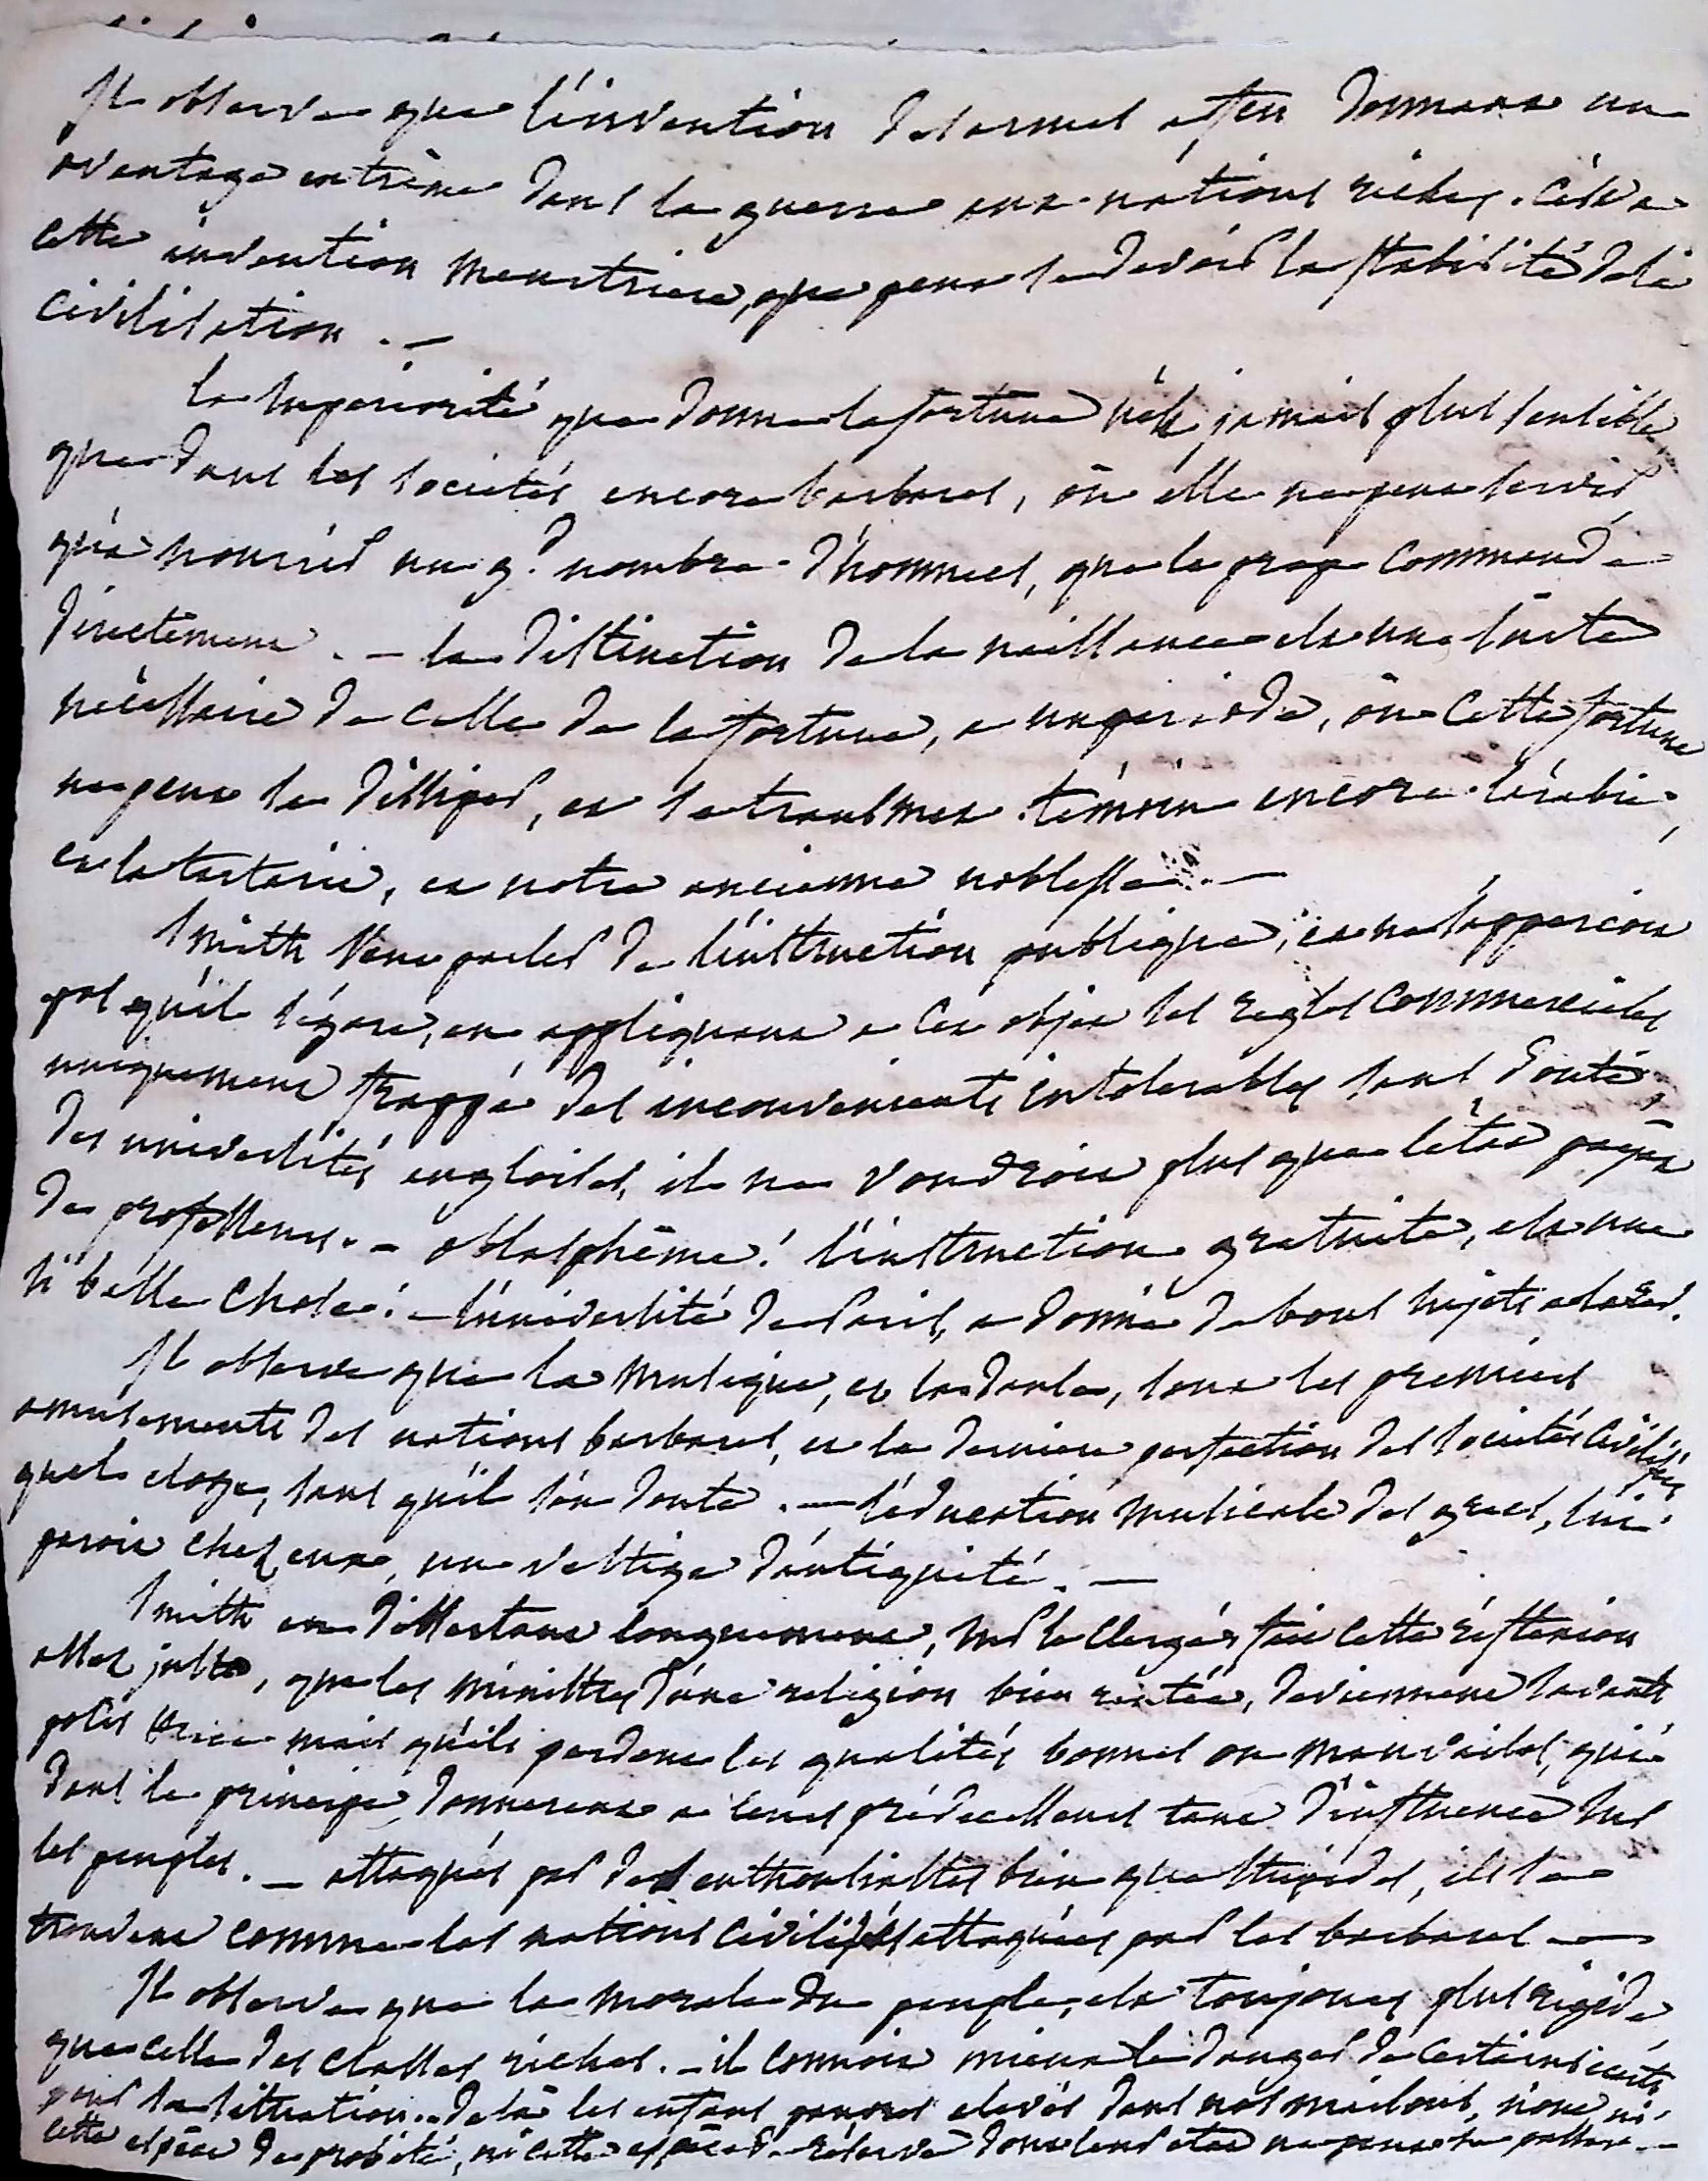 Il observe que l'invention des armes a feu donnera un
avantage extrême dans la guerre aux nations riches. C'est a
cette invention meurtriere, que peut se devoir la stabilité de la
civilisation. —
la superiorité que donne la fortune n'est jamais plus sensible
que dans les societés encore barbares, où elle ne peut servir
qu'à nourrir un g.d nombre d'hommes, que le prop. commande
directement. — la distinction de la naissance est une suite
nécessaire de celle de la fortune, a un periode, où cette fortune
ne peut se dissiper, et se transmet. témoin encore l'arabie,
et la tartarie, et notre ancienne noblesse. —
Smith veut parler de l'instruction publique, et ne s'apperçoit
pas qu'il s'égare, en appliquant a cet objet les regles commerciales
uniquement frappé des inconvenients intolerables sans doute
des universités angloises, il ne voudroit plus que l'état payat
de professeurs. — o blasphême! l'instruction gratuite, est une
si belle chose! — l'université de Paris, a donné de bons sujets
Il observe que la musique, et la danse, sont les premiers
amusements des nations barbares, et la derniere perfection des societés civilisées
quel eloge, sans qu'il s'en doute. — l'éducation musicale des grecs, lui
paroit chez eux, un vestige d'antiquité. —
Smith en dissertant longuement, sur le clergé, fait cette réflexion
assez juste, que les ministres d'une religion bien rentée, deviennent savants
polis mais qu'ils perdent les qualités bonnes ou mauvaises, qui
dans le principe, donnerent a leurs prédecesseurs tant d'influence sur
les peuples. — attaqués par des enthousiastes bien que stupides, ils se
trouvent comme les nations civilisées attaquées par les barbares —
Il observe que la morale du peuple, est toujours plus rigide
que celle des classes riches. — il connoit mieux le danger de certains écarts
pour sa situation. — De là les enfans pauvres elevés dans nos maisons, n'ont ni
cette espece de probité, ni cette espece de réserve dont leur état ne peut se passer. —